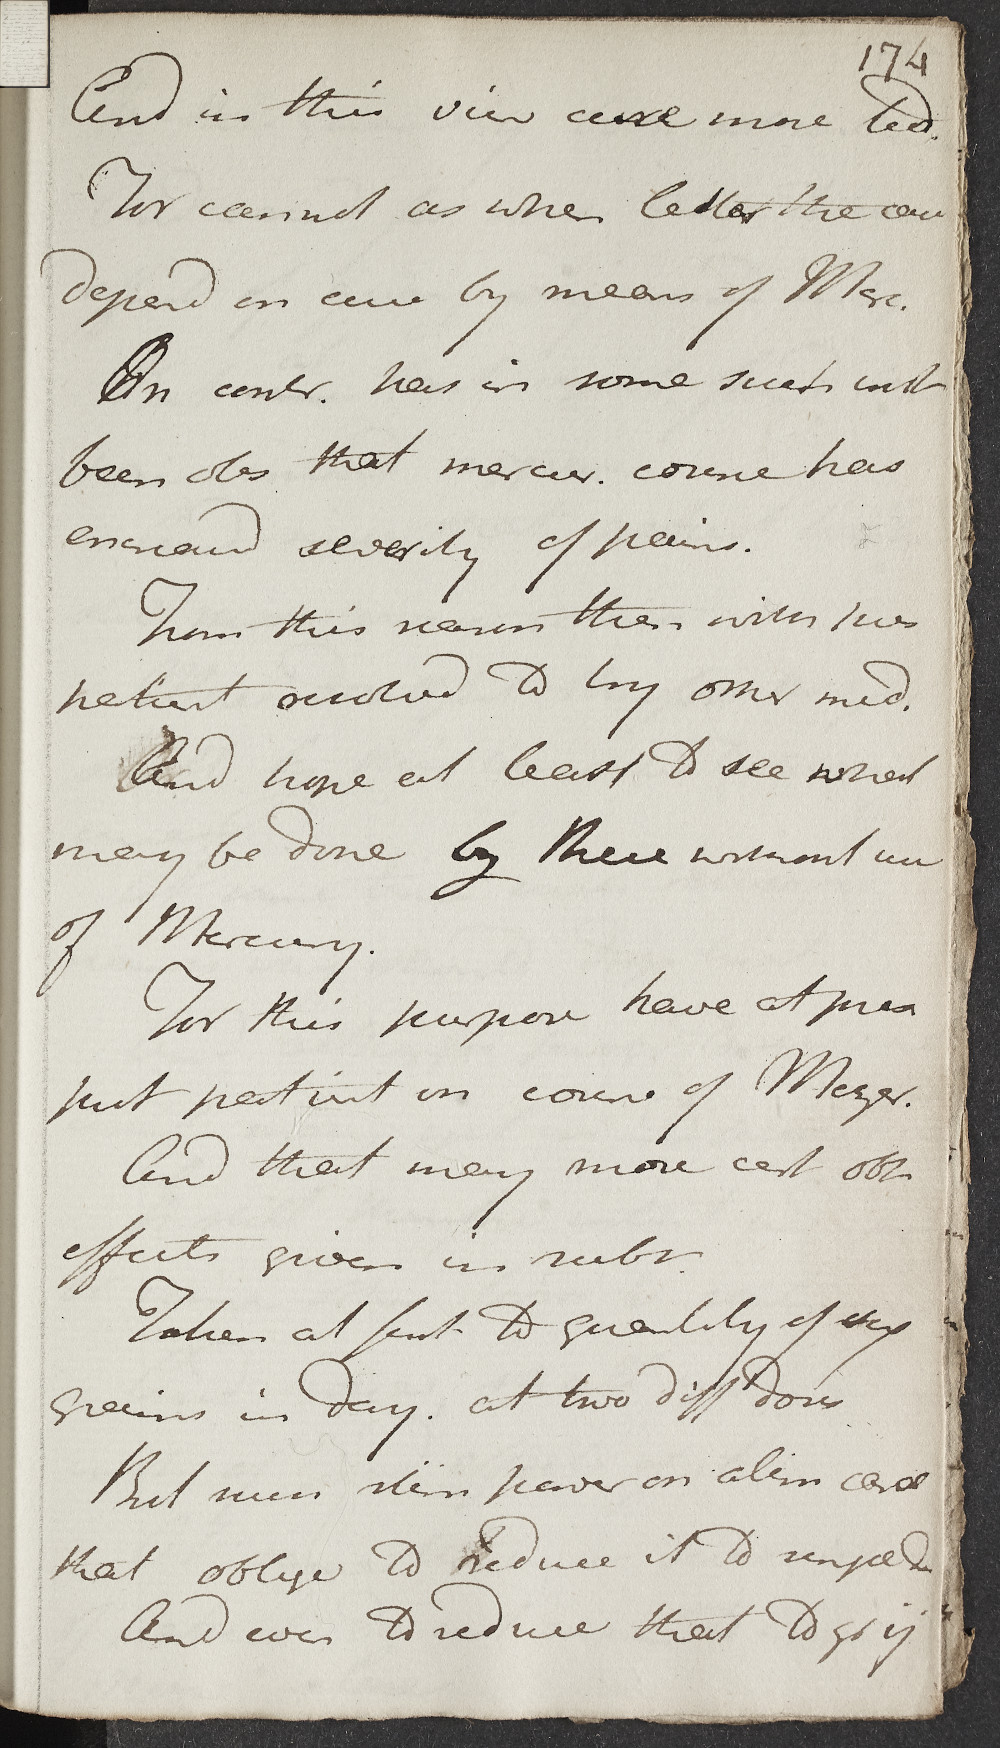 174
And in this view cure more ted.
For cannot as when latter the cau
depend on cure by means of Merc.
On contr. has in some such inst
been obs that mercur. course has
increased severity of pains.
From this reason then with pres
patient resolved to try other med.
And hope at least to see what
may be done by these without use
of Mercury.
For this purpose have at pres
put patient on course of Mezer.
And that may more cert obtn
effects given in subst.
Taken at first to quantity of
grains in day. at two diff doses
But such stim power on alim canal
that obliged to reduce it to single dose
And even to reduce that to gr ij